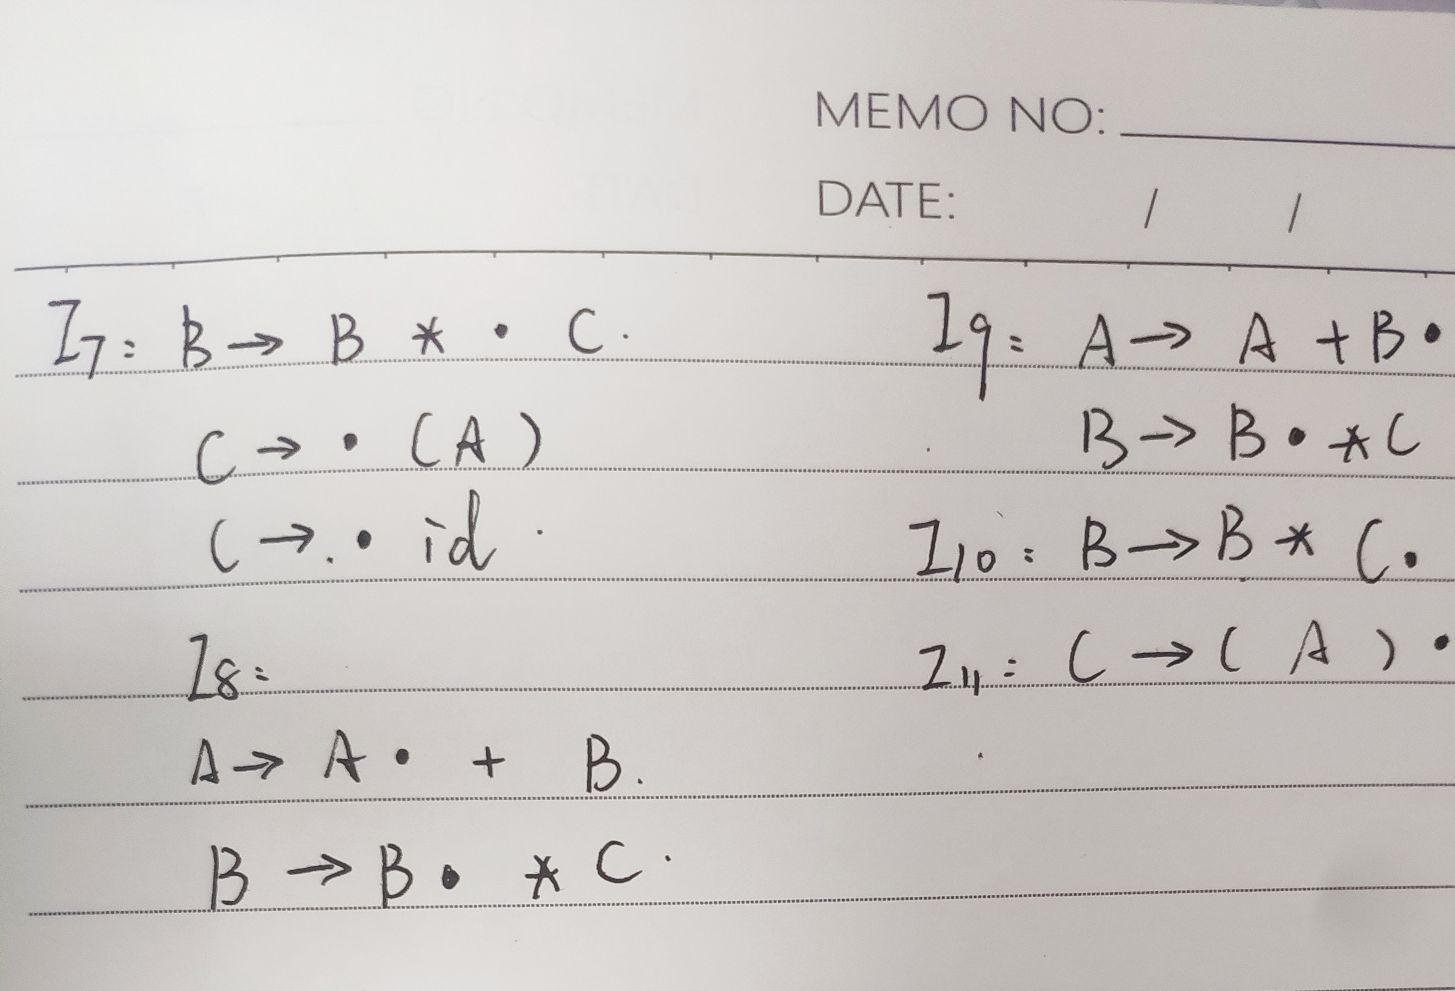 MEMO NO:
DATE: / /
I7: B → B * · C.
C → · (A)
C → · id
I8:
A → A · + B.
B → B · * C.
I9: A → A + B ·
B → B · * C
I10: B → B * C ·
I11: C → ( A ) ·